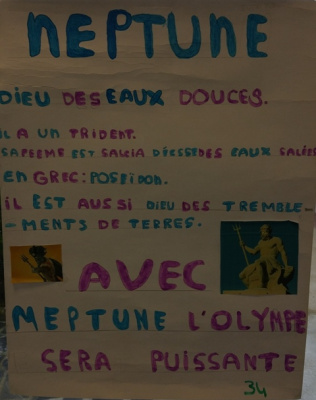 NEPTUNE
DIEU DES EAUX DOUCES.
IL A UN TRIDENT.
SA FEEME EST SALCIA DÉESSE DES EAUX SALÉES
EN GREC: POSEIDON.
IL EST AUSSI DIEU DES TREMBLE-
-MENTS DE TERRES.
AVEC
NEPTUNE L'OLYMPE
SERA PUISSANTE
34